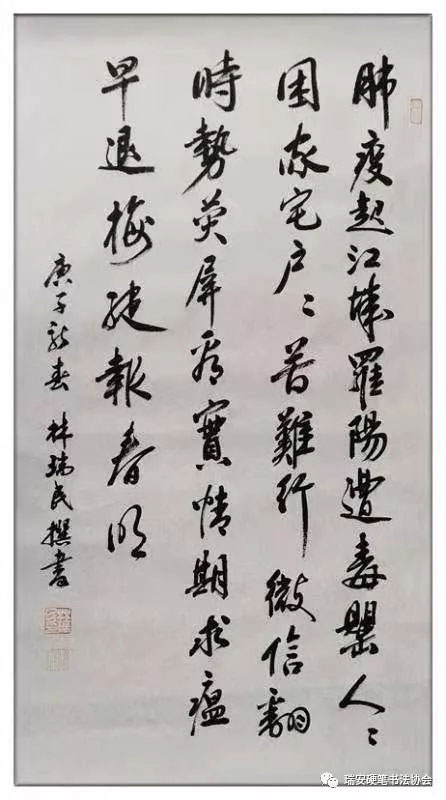 肺疫起江城羅陽遭毒罌人〻
困家宅戶〻苦難行微信翻
時勢熒屏看實情期求瘟
早退梅綻報春明
庚子新春 林瑞民撰書
瑞安硬笔书法协会